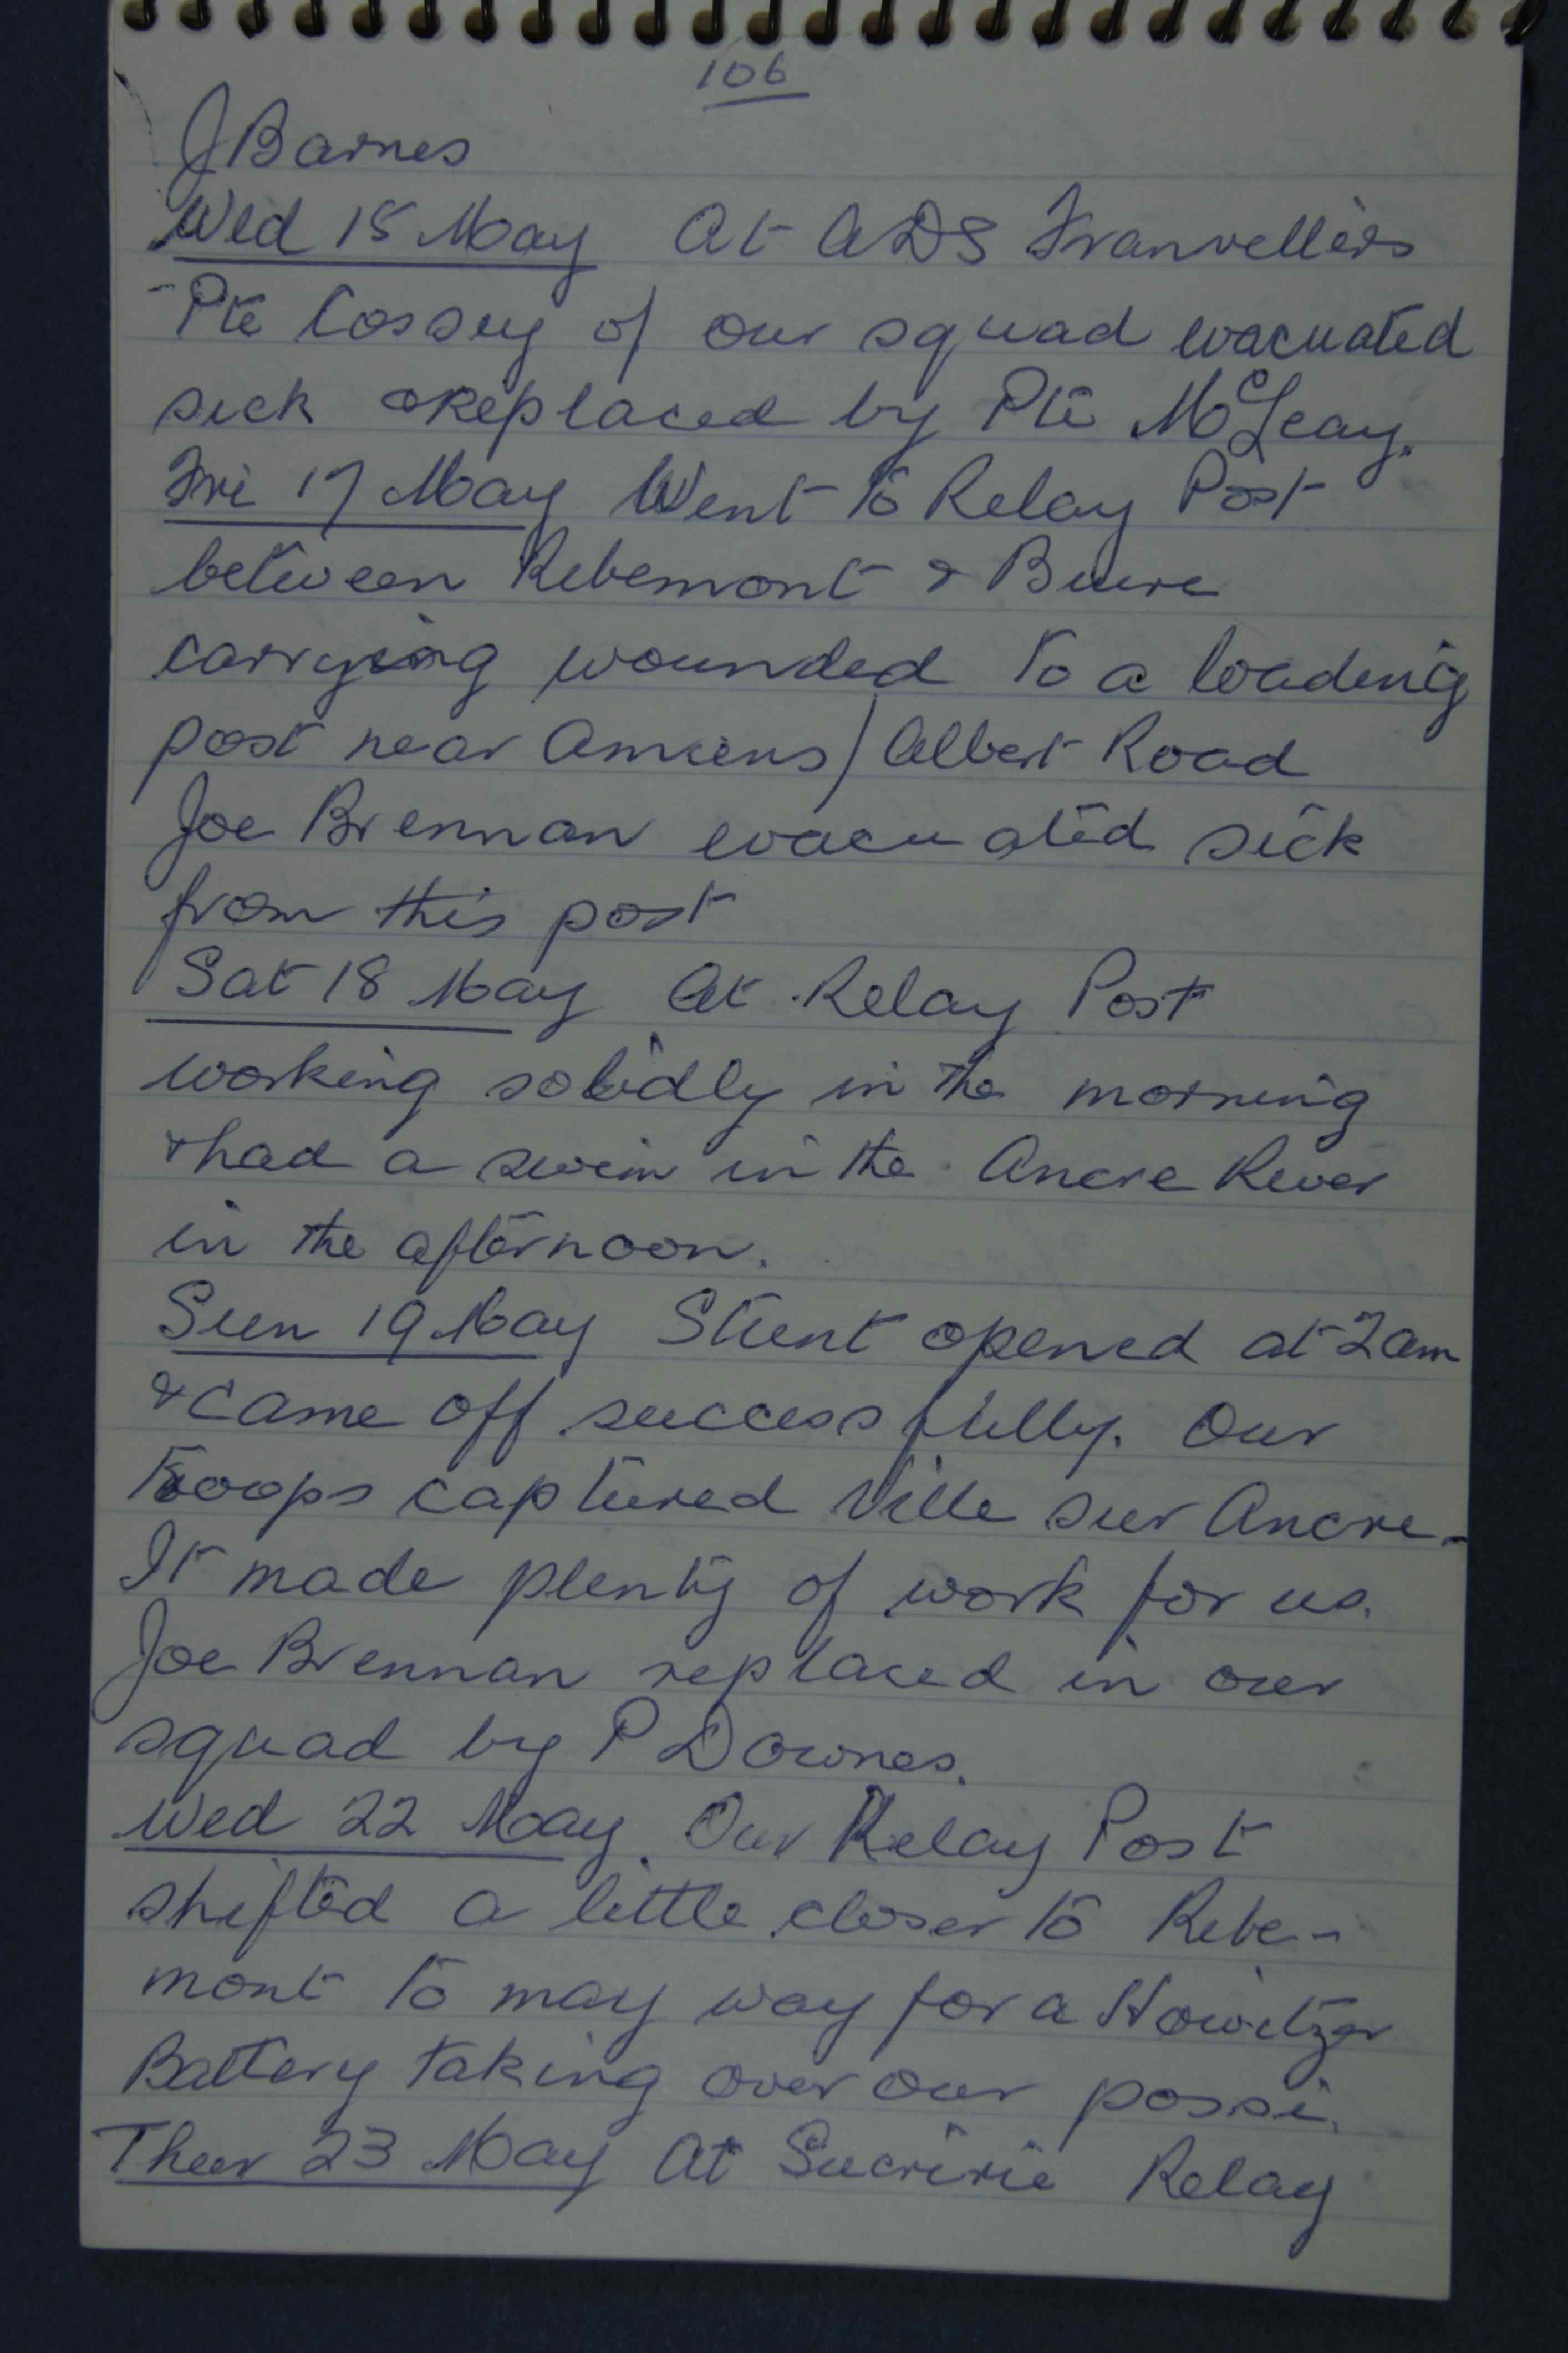 106
J Barnes
Wed 15 May At ADS Franvelliers
Pte Cossey of our squad evacuated
sick & Replaced by Pte McLeay.
Fri 17 May Went to Relay Post
between Rebemont & Buire
carrying wounded to a loading
post near Amiens / Albert Road
Joe Brennan evacuated sick
from this post
Sat 18 May At Relay Post
working solidly in the morning
& had a swim in the Ancre River
in the afternoon.
Sun 19 May Stunt opened at 2am
& came off successfully. Our
Troops captured Ville sur Ancre -
It made plenty of work for us.
Joe Brennan replaced in our
squad by P Downes.
Wed 22 May. Our Relay Post
shifted a little closer to Rebe-
mont to may way for a Howitzer
Battery taking over our possi.
Thur 23 May At Sucririe Relay